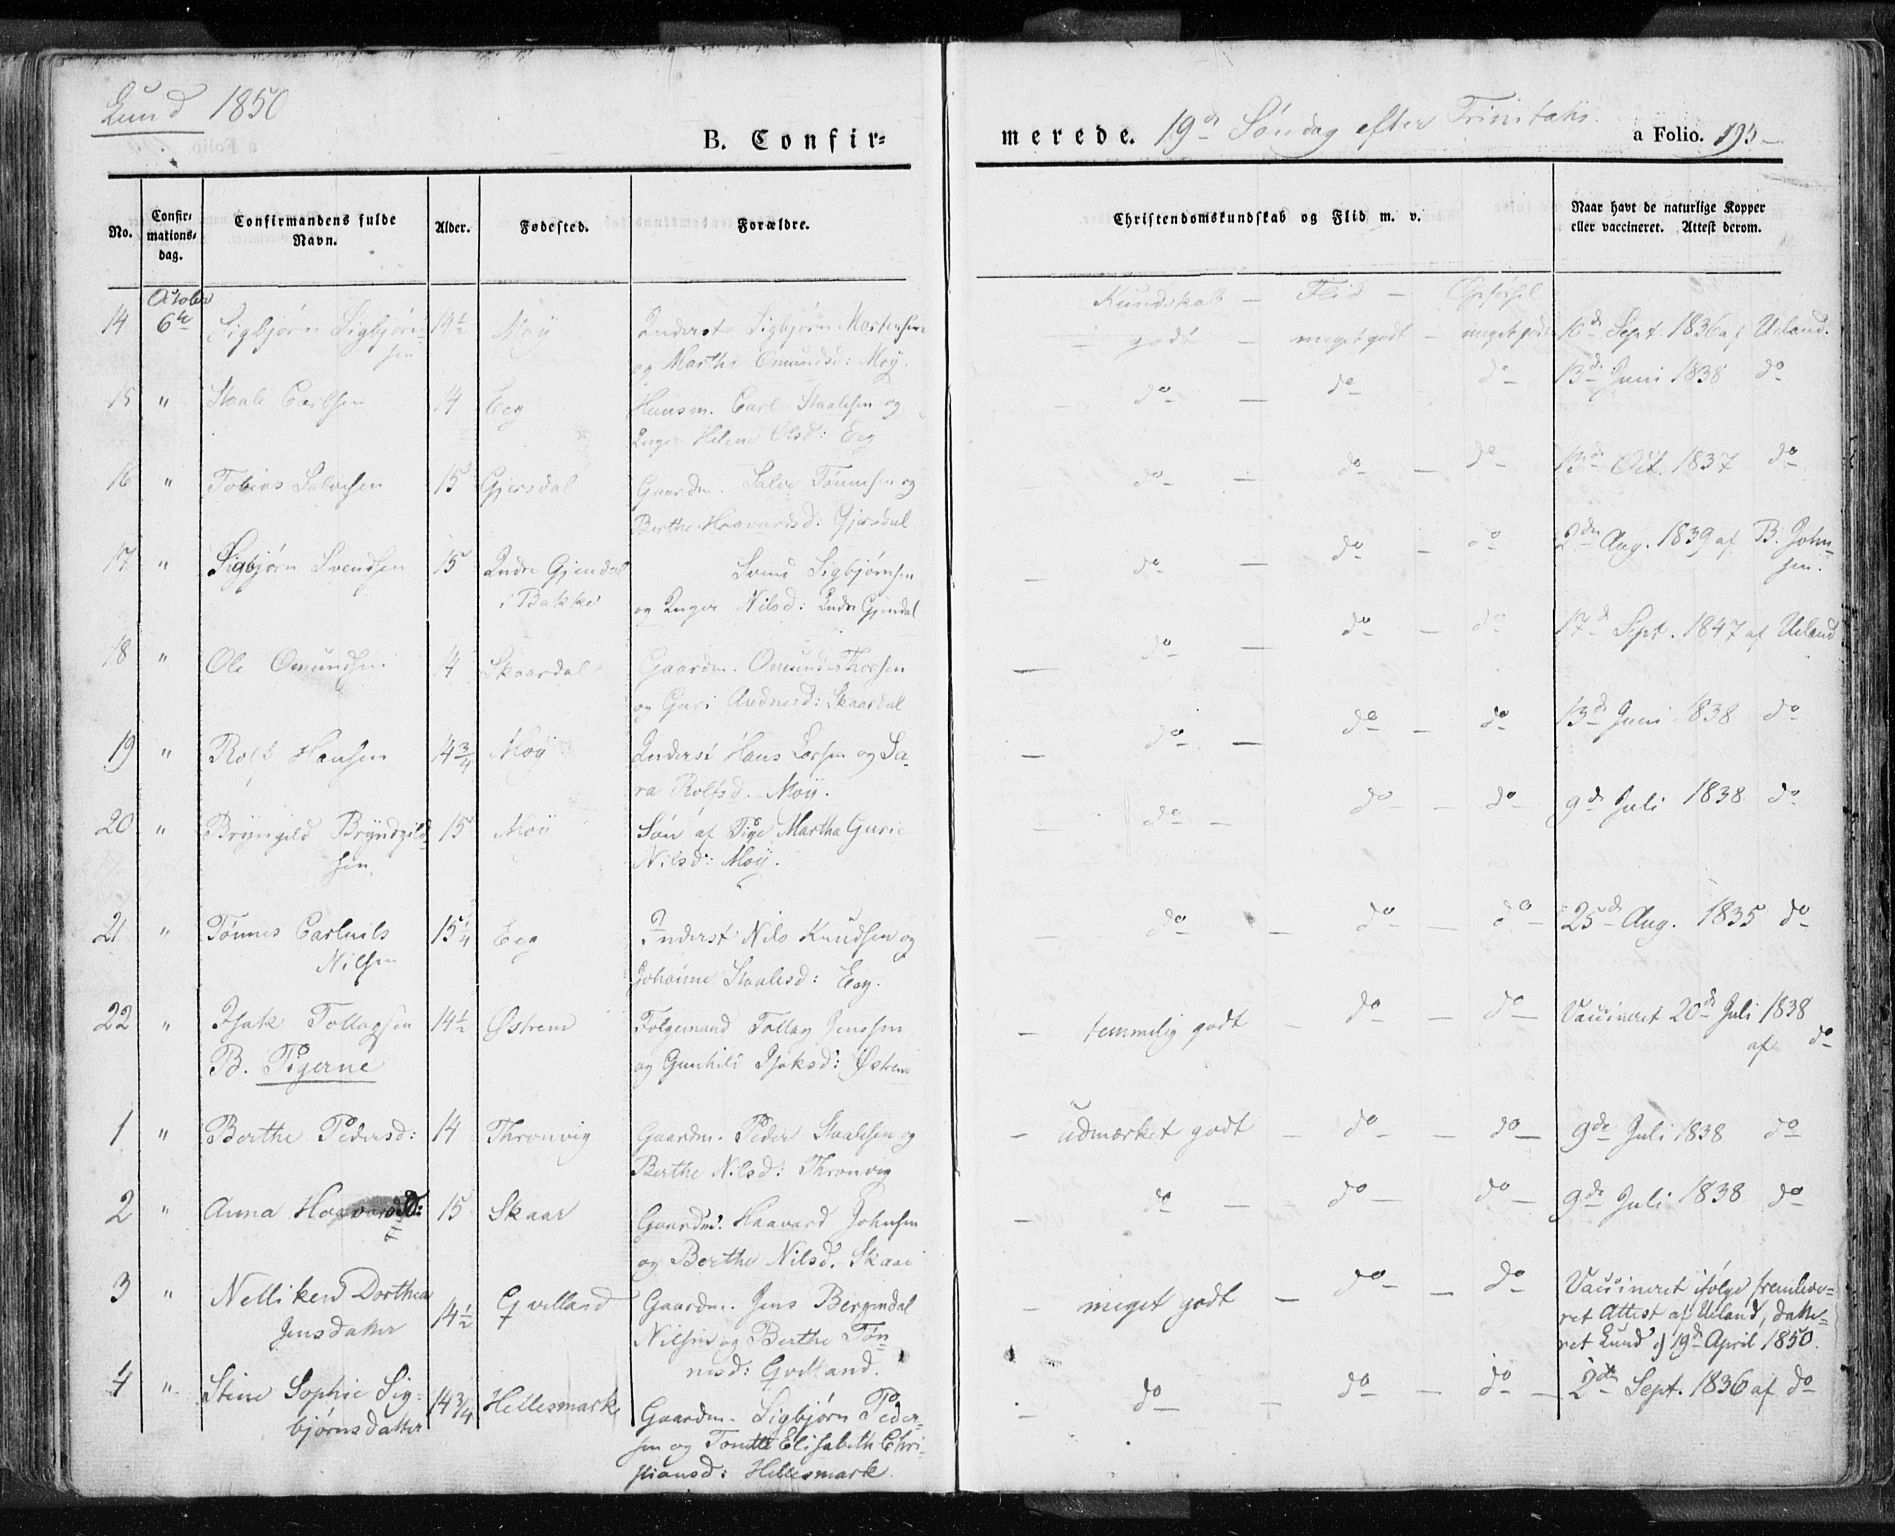 Lund 1850
B. Confir=
merede. 19de Søndag efter Trinitatis.
a Folio. 195
No.
Confir=
mations=
dag.
Confirmandens fulde
Navn.
Alder.
Fødested.
Forældre.
Christendomskundskab og Flid m. v.
Naar havt de naturlige Kopper
eller vaccineret. Attest derom.
October
Kundskab — Flid — Opførsel
14 6te Sigbjørn Sigbjørn= 14½ Moÿ Inderst Sigbjørn Mortensen — godt — meget godt — meget godt Sept. 1836 af Ueland.
sen og Marthe Omundsd: Moÿ.
15 " Staale Carlsen 14 Eeg Huusm. Carl Staalesen og — do — do — do 13de Juni 1838 do
Inger Helene Olsd: Eeg
16 " Tobias Salvesen 15 Gjersdal Gaardm. Salve Tønnesen og do — do — do Oct. 1837 do
Berthe Haavardsd: Gjersdal
17 " Sigbjørn Svendsen 15 Indre Gjendal Svend Sigbjørnsen — do do — do 2den Aug. 1839 af B. John=
i Bakke og Inger Nilsd: Indre Gjendal sen.
18 " Ole Omundsen 14 Skaardal Gaardm. Omund Thorsen — do do — do 17de Sept. 1847 af Ueland
og Guri Aadnesd: Skaardal
19 " Rolf Hansen 14¾ Moÿ Inderst Hans Larsen og Sa= — do — do — do 13de Juni 1838 do
ra Rolfsd. Moÿ.
20 " Brÿngild Brÿndgild= 15 Moÿ Søn af Pige Martha Gurie — do — do — do 9de Juli 1838 do
sen. Nilsd: Moÿ.
21 " Tønnes Carluils 15¼ Eeg Inderst Nils Knudsen og do — do — do 25de Aug. 1835 do
Nilsen Johanne Staalesd: Eeg.
22 " Isak Tollagsen 14½ Østrem Folgemand Tollag Jensen — temmelig godt — do — do — Vaccineret 20de Juli 1838
B. Pigerne og Gunhild Isaksd: Østrem af do
1 " Berthe Pedersd: 14 Thronvig Gaardm. Peder Staalesen og — udmærket godt — do — do — 9de Juli 1838 do
Berthe Nilsd: Thronvig
2 " Anna Haavardsd: 15 Skaar Gaardm. Haavard Johnsen — do — do — do — 9de Juli 1838 do
og Berthe Nilsd. Skaar
3 " Nelliken Dorthea 14½ Gvelland Gaardm. Jens Bergendal — meget godt — do — do Vaccineret ifølge fremleve=
Jensdatter Nilsen og Berthe Tøn= ret Attest af Ueland, date=
nesd: Gvelland. ret Lund d 19de April 1850.
4 " Stine Sophie Sig= 14¾ Hellesmark Gaardm. Sigbjørn Peder= — do — do — do — 2den Sept. 1836 af do
bjørnsdatter sen og Tonette Elisabeth Chri=
stiansd: Hellesmark.